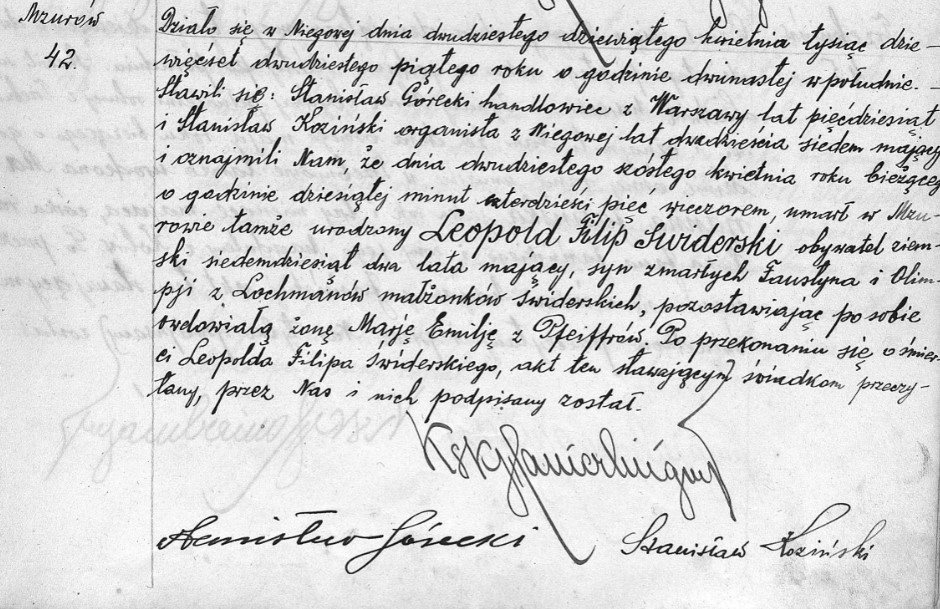 Mzurów
42.
Działo się w Niegowej dnia dwudziestego dziewiątego kwietnia tysiąc dzie-
więćset dwudziestego piątego roku o godzinie dwunastej w południe. –
Stawili się: Stanisław Górecki handlowiec z Warszawy lat pięćdziesiąt
i Stanisław Koziński organista z Niegowej lat dwadzieścia siedem mający
i oznajmili Nam, że dnia dwudziestego szóstego kwietnia roku bieżącego
o godzinie dziesiątej minut czterdzieki pięć wieczorem, umarł w Mzu-
rowie tamże urodzony Leopold Filip Swiderski obywatel ziem-
ski siedemdziesiąt dwa lata mający, syn zmarłych Faustyna i Olim-
pji z Lochmanów małżonków Świderskich, pozostawiając po sobie
owdowiałą żonę Marję Emilję z Pfeiffrów. Po przekonaniu się o śmier-
ci Leopolda Filipa Świderskiego, akt ten stawającym świadkom przeczy-
tany, przez Nas i nich podpisany został.
Stanisław Górecki
Stanisław Koziński